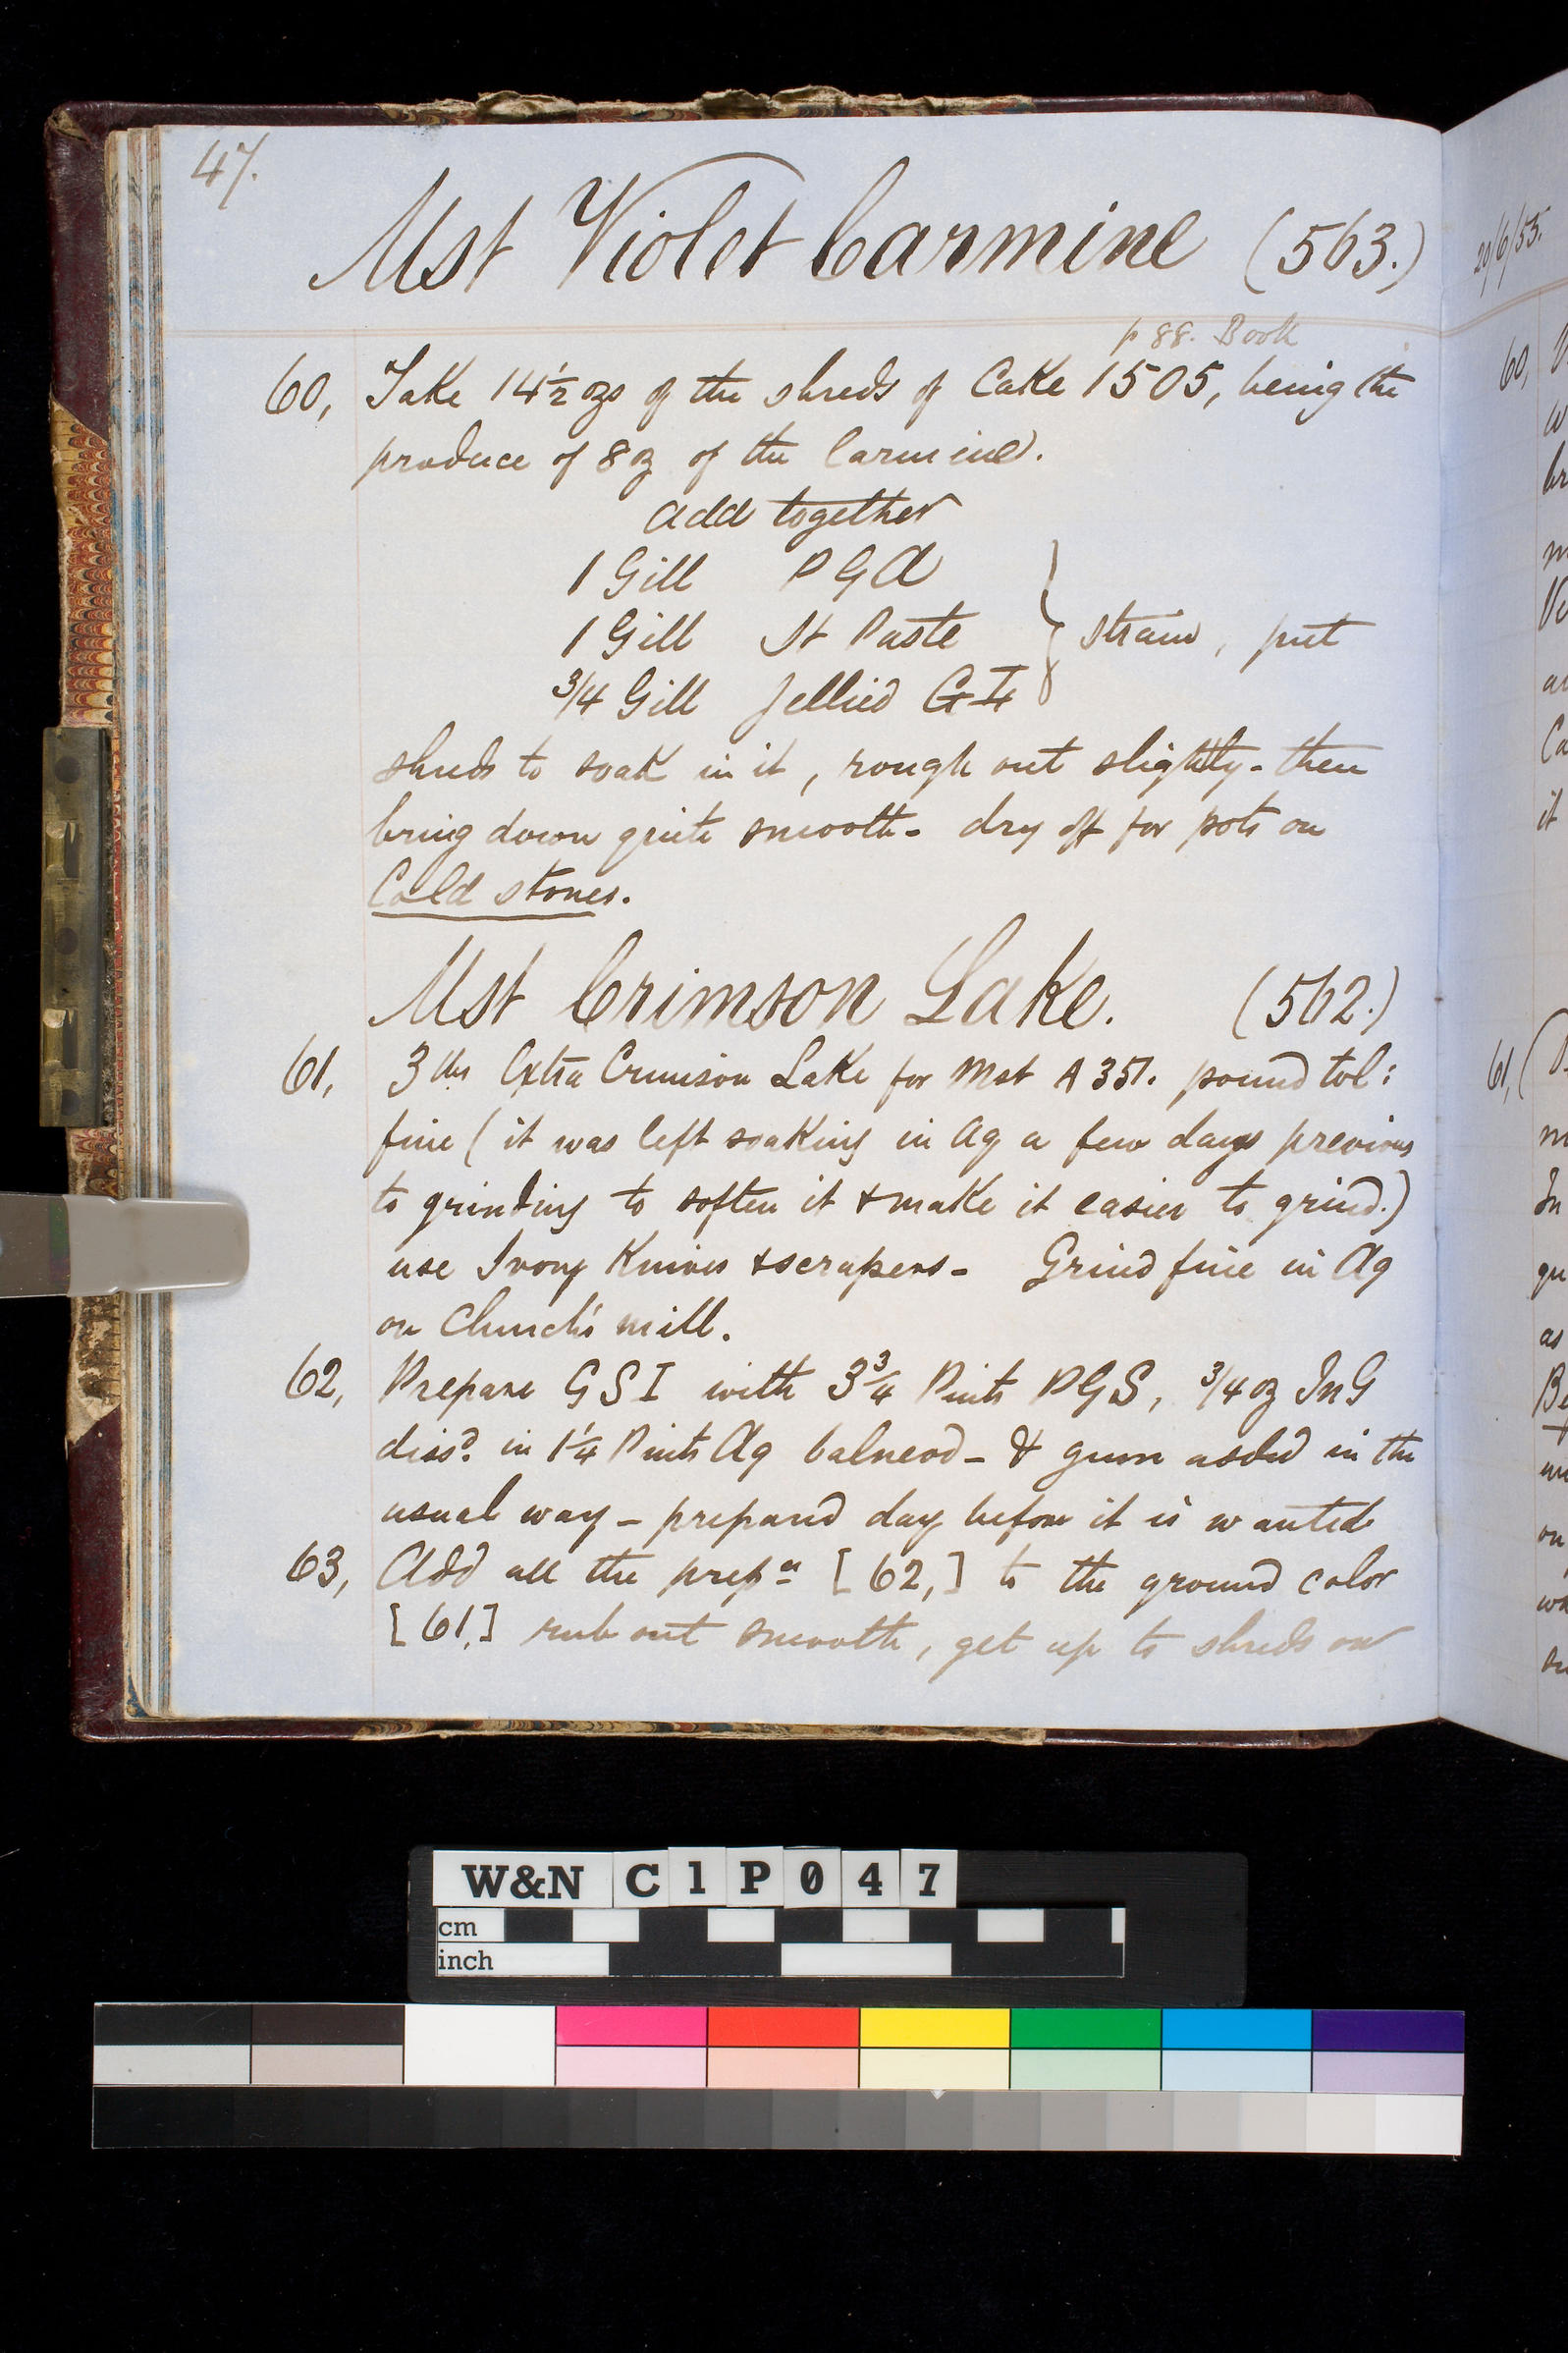 47.
Mst Violet Carmine (563.)
p 88. Book
60, Take 14½ ozs of the shreds of Cake 1505, being the
produce of 8 oz of the Carmine.
add together
1 Gill P G A
1 Gill St Paste } strain, put
3/4 Gill Jellied G T
shreds to soak in it, rough out slightly - then
bring down quite smooth - dry off for pots on
Cold stones.
Mst Crimson Lake. (562.)
61, 3 lbs Extra Crimson Lake for Mst A 351. pound tol:
fine (it was left soaking in Aq a few days previous
to grinding to soften it & make it easier to grind.)
use Ivory Knives & scrapers - Grind fine in Aq
on Church's mill.
62, Prepare G S I with 3¾ Pints P G S, 3/4 oz In G
dissd. in 1¼ Pints Aq balneod - & gum added in the
usual way - prepared day before it is wanted
63, Add all the prepn [62,] to the ground color
[61,] rub out smooth, get up to shreds on
20/6/55.
60,
61, (
it
as
W&N C 1 P 0 4 7
cm
inch